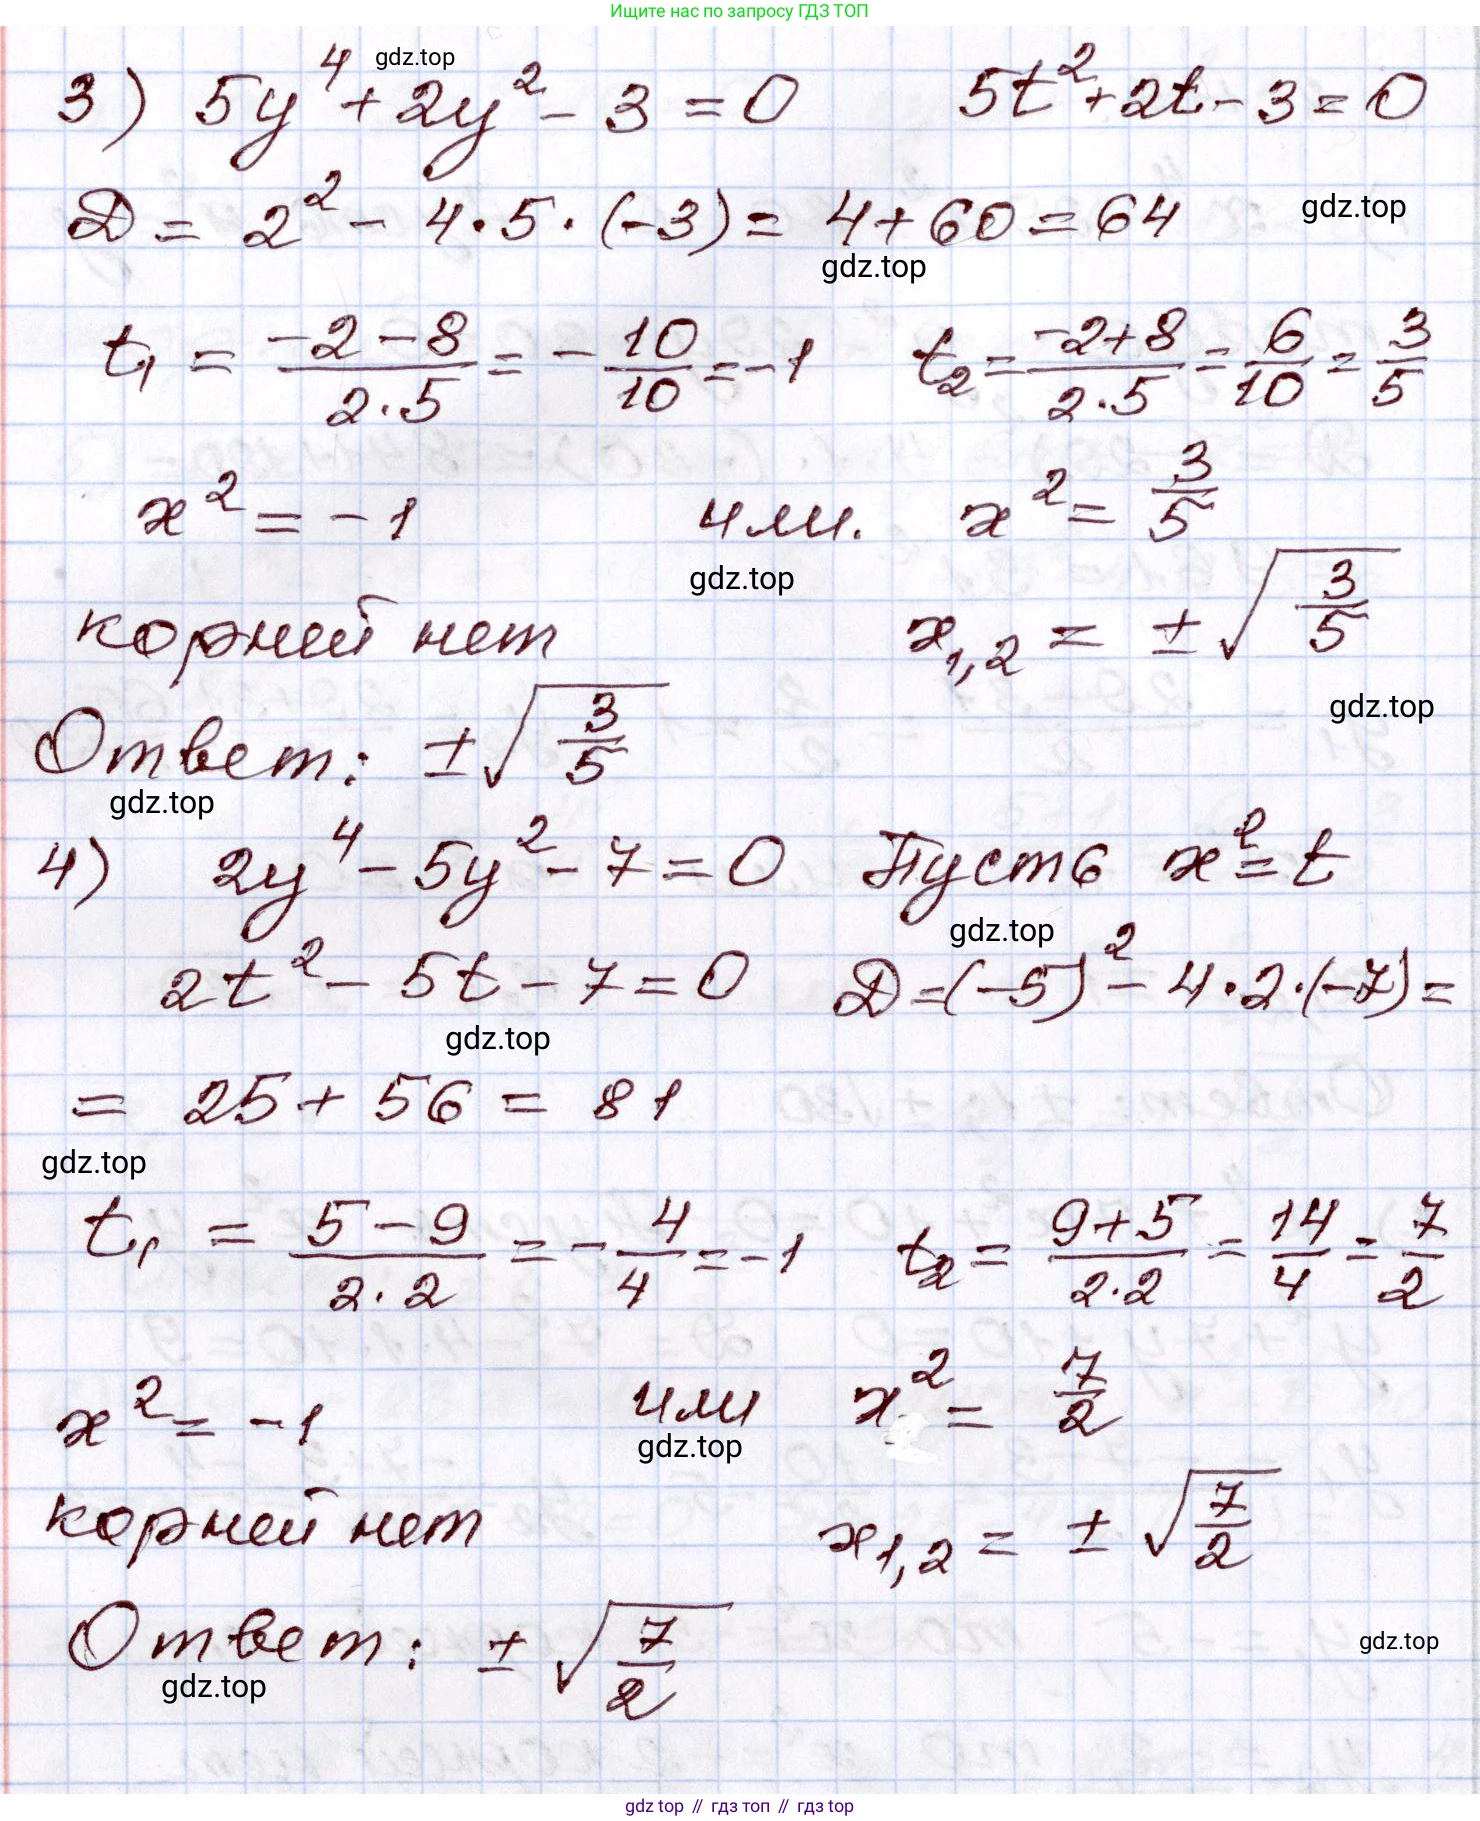 Ищите нас по запросу ГДЗ ТОП
gdz.top
3) 5y⁴ + 2y² - 3 = 0 5t² + 2t - 3 = 0
D = 2² - 4·5·(-3) = 4 + 60 = 64
gdz.top
gdz.top
t₁ = (-2-8)/(2·5) = -10/10 = -1 t₂ = (-2+8)/(2·5) = 6/10 = 3/5
x² = -1 или. x² = 3/5
gdz.top
корней нет x₁,₂ = ±√(3/5)
gdz.top
Ответ: ±√(3/5)
gdz.top
4) 2y⁴ - 5y² - 7 = 0 Пусть x² = t
gdz.top
2t² - 5t - 7 = 0 D = (-5)² - 4·2·(-7) =
gdz.top
= 25 + 56 = 81
gdz.top
t₁ = (5-9)/(2·2) = -4/4 = -1 t₂ = (9+5)/(2·2) = 14/4 = 7/2
x² = -1 или x² = 7/2
gdz.top
корней нет x₁,₂ = ±√(7/2)
Ответ: ±√(7/2)
gdz.top
gdz.top
gdz top // гдз топ // гдз top